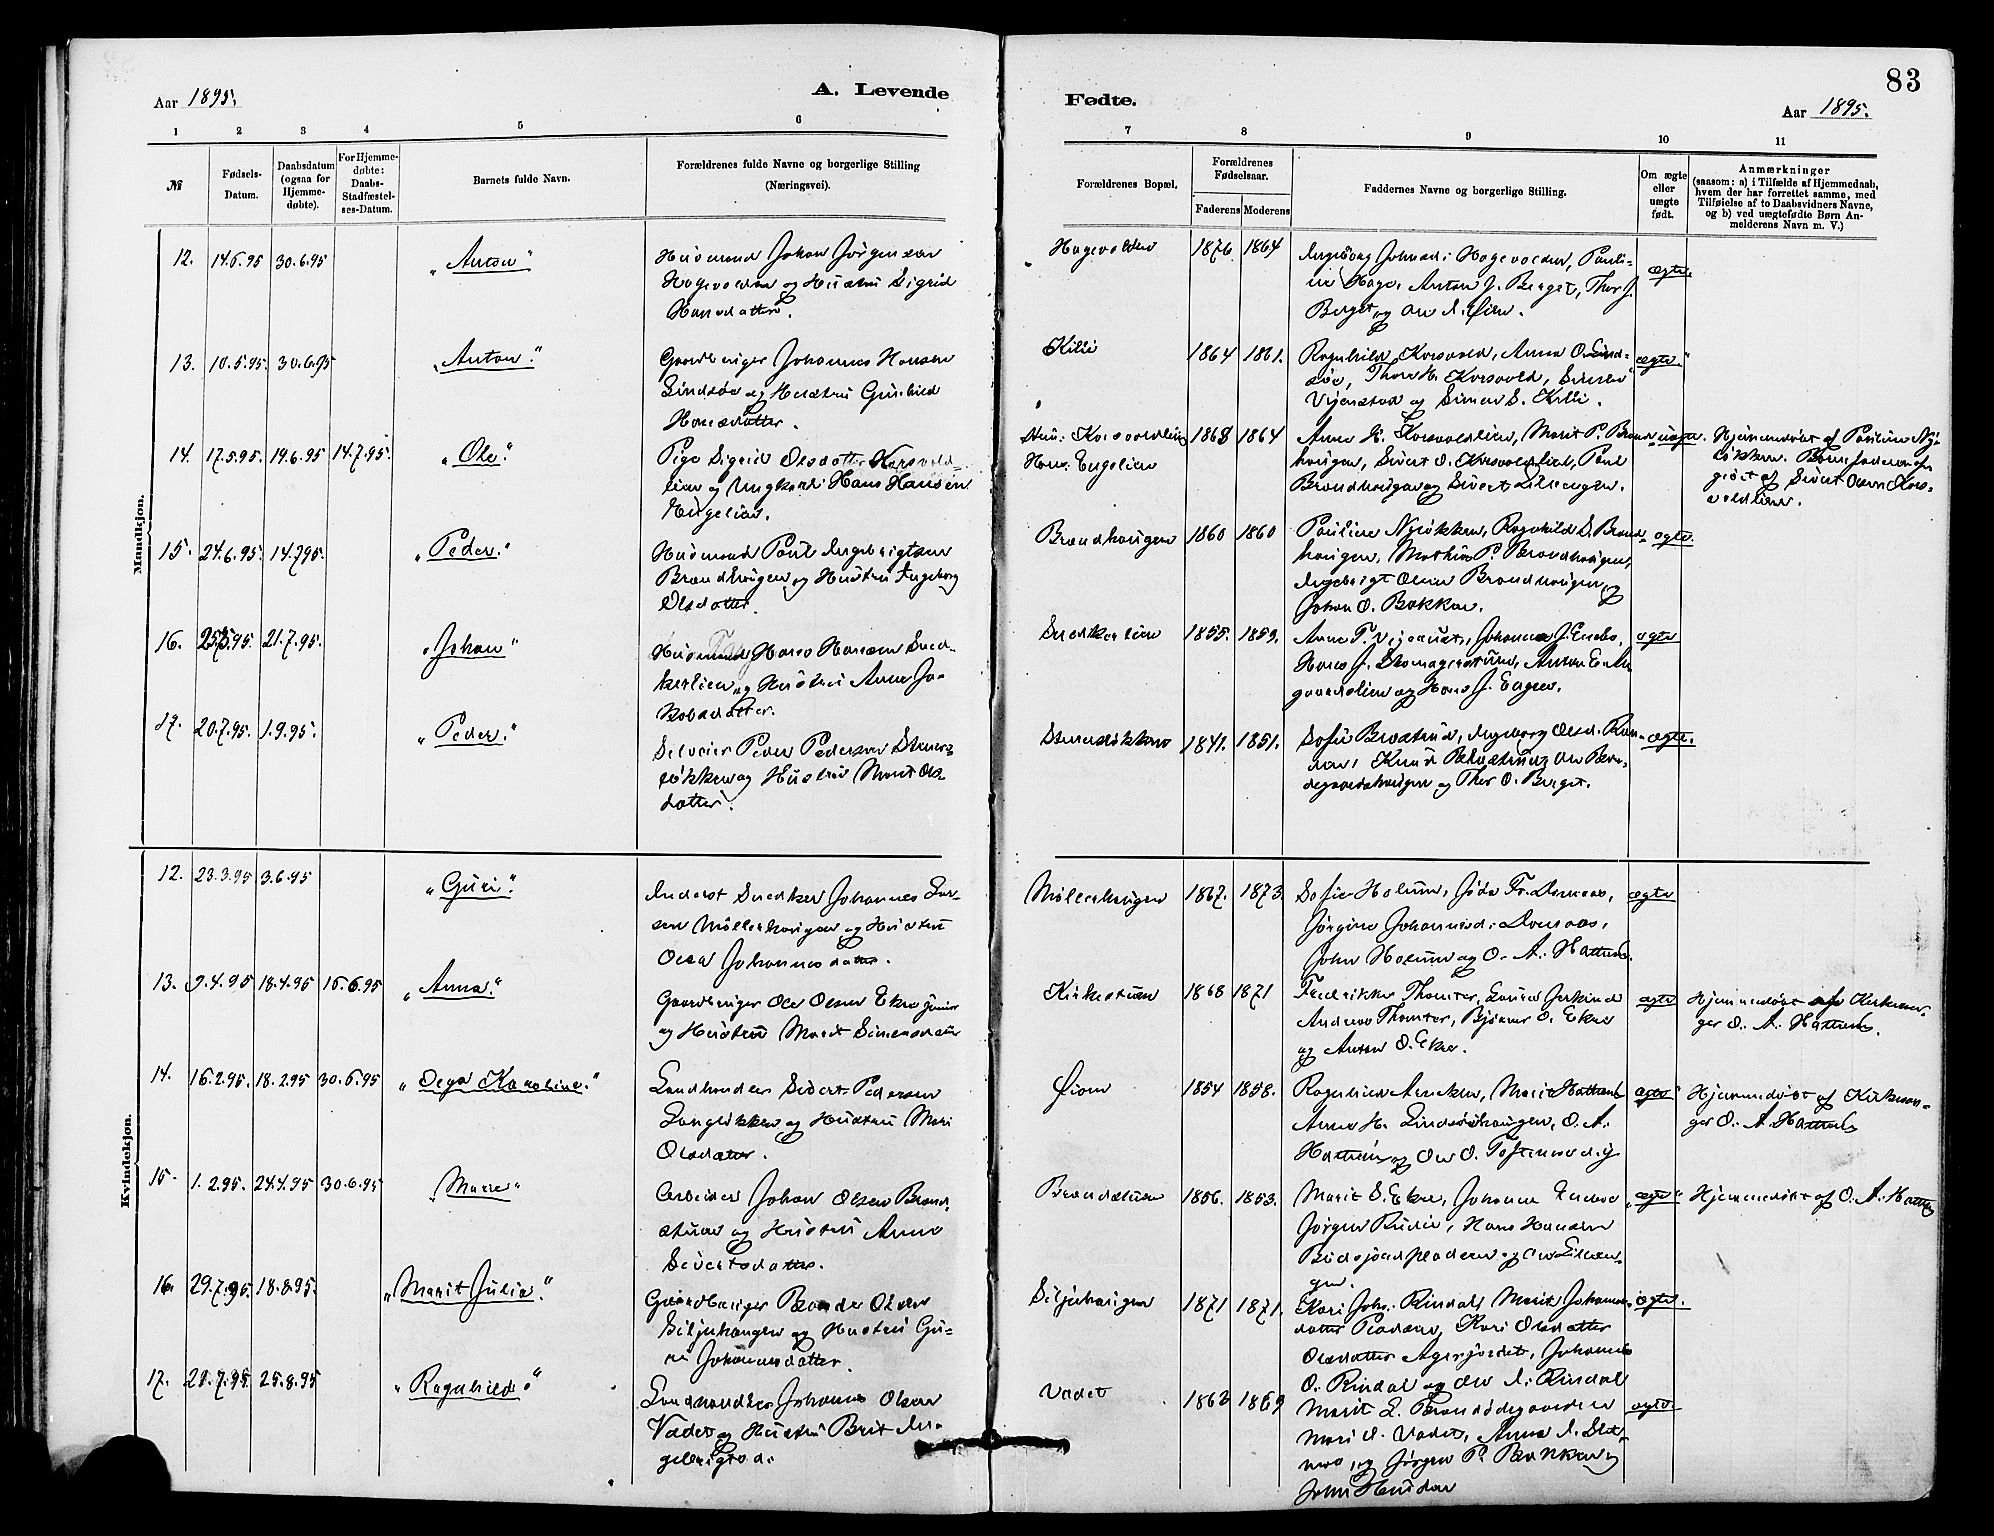 83
Aar 1895.
A. Levende
Fødte.
Aar 1895.
1 2 3 4 5 6
7 8 9 10 11
№
Fødsels-
Datum.
Daabsdatum
(ogsaa for
Hjemme-
døbte).
For Hjemme-
døbte:
Daabs-
Stadfæstel-
ses-Datum.
Barnets fulde Navn.
Forældrenes fulde Navne og borgerlige Stilling
(Næringsvei).
Forældrenes Bopæl.
Forældrenes
Fødselsaar.
Faderens Moderens
Faddernes Navne og borgerlige Stilling.
Om ægte
eller
uægte
født.
Anmærkninger
(saasom: a) i Tilfælde af Hjemmedaab,
hvem der har forrettet samme, med
Tilføielse af to Daabsvidners Navne,
og b) ved uægtefødte Børn An-
melderens Navn m. V.)
Mandkjøn.
12. 30.6.95 "Anton"
Husmand Johan Jörgensen
Hagevolden og Hustru Sigrid
Hansdatter.
Hagevolden 1876 1864
Ingeborg Johnsd: Hagevolden, Pauli-
ne Hage, Anton J. Berget, Thor J.
Berget, og
ægte
13. 10.5.95. 30.6.95 "Anton."
Gaardbruger Johannes Hansen
Lindsøe og Hustru Gunhild
Hansdatter.
Kilie 1864 1861.
Ragnhild Korsvold, Anna O. Lind-
søe, Thore H. Korsvold,
og Simen S. Kilie.
ægte"
14. 17.5.95. 19.6.95 14.7.95. "Ole."
Pige Sigrid Olsdatter Korsvold-
lien og Ungkarl Hans Hansen
Engelien.
Hun: Korsvoldlien 1868 1864
Han: Engelien
Anne K. Korsvoldlien, Marit P. Brand-
haugen, Sivert O. Korsvoldlien, Paul
Brandhaugen og Sivert Lillengen.
uægte.
Hjemmedøbt af Pauline Ny-
løkken. Barnefaderen op-
givet af Sivert Olsen Kors-
voldlien.
15. 24.6.95. 14.7.95. "Peder."
Husmand Paul Ingebrigtsen
Brandhaugen og Hustru Ingeborg
Olsdatter.
Brandhaugen 1860 1860
Pauline Nyløkken, Ragnhild S. Brand-
haugen, Mathias P. Brandhaugen,
Ingebrigt Olsen Brandhaugen, og
Johan O. Bakken.
ægte.
16. 21.7.95. "Johan"
Husmand Hans Hansen Sned-
kerlien og Hustru Anne Ja-
kobsdatter.
Snedkerlien 1855. 1859.
Hans J. Skomagerstuen, Anton E. An-
gaardslien og Hans J. Engen.
ægte
17. 20.7.95. 1.9.95. "Peder."
Selveier Peder Pedersen Stener-
løkken og Hustru Marit Ols-
datter.
Stenerløkken 1841. 1851.
Sofie Brustuen, Ingeborg Olsd.
Knud
og Thor O. Berget.
ægte.
Kvindekjøn.
12. 23.3.95 3.6.95 "Guri."
Inderst Snedker Johannes Lar-
sen Møllerhaugen og Hustru
Olea Johannesdatter.
Møllerhaugen 1867. 1873.
Sofie Holum, Jøda Fr. Domaas,
Jørgine Johannesd: Domaas,
John Holum og O. A. Hattrem.
ægte
13. 9.4.95 18.4.95 16.6.95 "Anna."
Gaardbruger Ole Olsen Ekre junior
og Hustru Marit Simensdatter
Kirkestuen 1868 1871
Fredrikke Thomter, Laura Jerkind
Andreas Thomter, Bjørner O. Ekre
og Anton O. Ekre.
ægte
Hjemmedøbt af Kirkesan-
ger O. A. Hattrem.
14. 16.2.95. 18.2.95 30.6.95 "Olga Karoline."
Landhandler Sivert Pedersen
Langløkken og Hustru Mari
Olsdatter.
1854 1858.
Ragnhild Arneken, Marit Hattrem
Anne H. Lindsøhaugen, O. A.
Hattrem og Ole O. Toftemo
ægte"
Hjemmedøbt af Kirkesan-
ger O. A. Hattrem
15. 1.2.95. 24.4.95 30.6.95 "Marie"
Arbeider Johan Olsen Brand-
stuen og Hustru Anne
Sivertsdatter.
Brandstuen 1856. 1853.
Marit S. Ekre, Johanne Enebo
Jørgen Rudie, Hans Hansen
og Ole Lillen-
gen.
"ægte"
Hjemmedøbt af O. A. Hattrem
16. 29.7.95. 18.8.95. "Marit Julie."
Gaardbruger Peder Olsen
Siljuhaugen og Hustru Gu-
ri Johannesdatter.
Siljuhaugen 1871 1871.
Kari Joh. Rindal, Marit Johannes-
datter Kari Olsdatter
Olsdatter Agerjordet, Johannes
O. Rindal og Ole I. Rindal
ægte.
17. 21.7.95. 25.8.95 "Ragnhild."
Landhandler Johannes Olsen
Vadet og Hustru Brit In-
gebrigtsd.
Vadet 1863 1869
Marit L. Brandødegaarden
Mari O. Vadet, Anna I.
og Jørgen P. Bakken og
John
ægte.